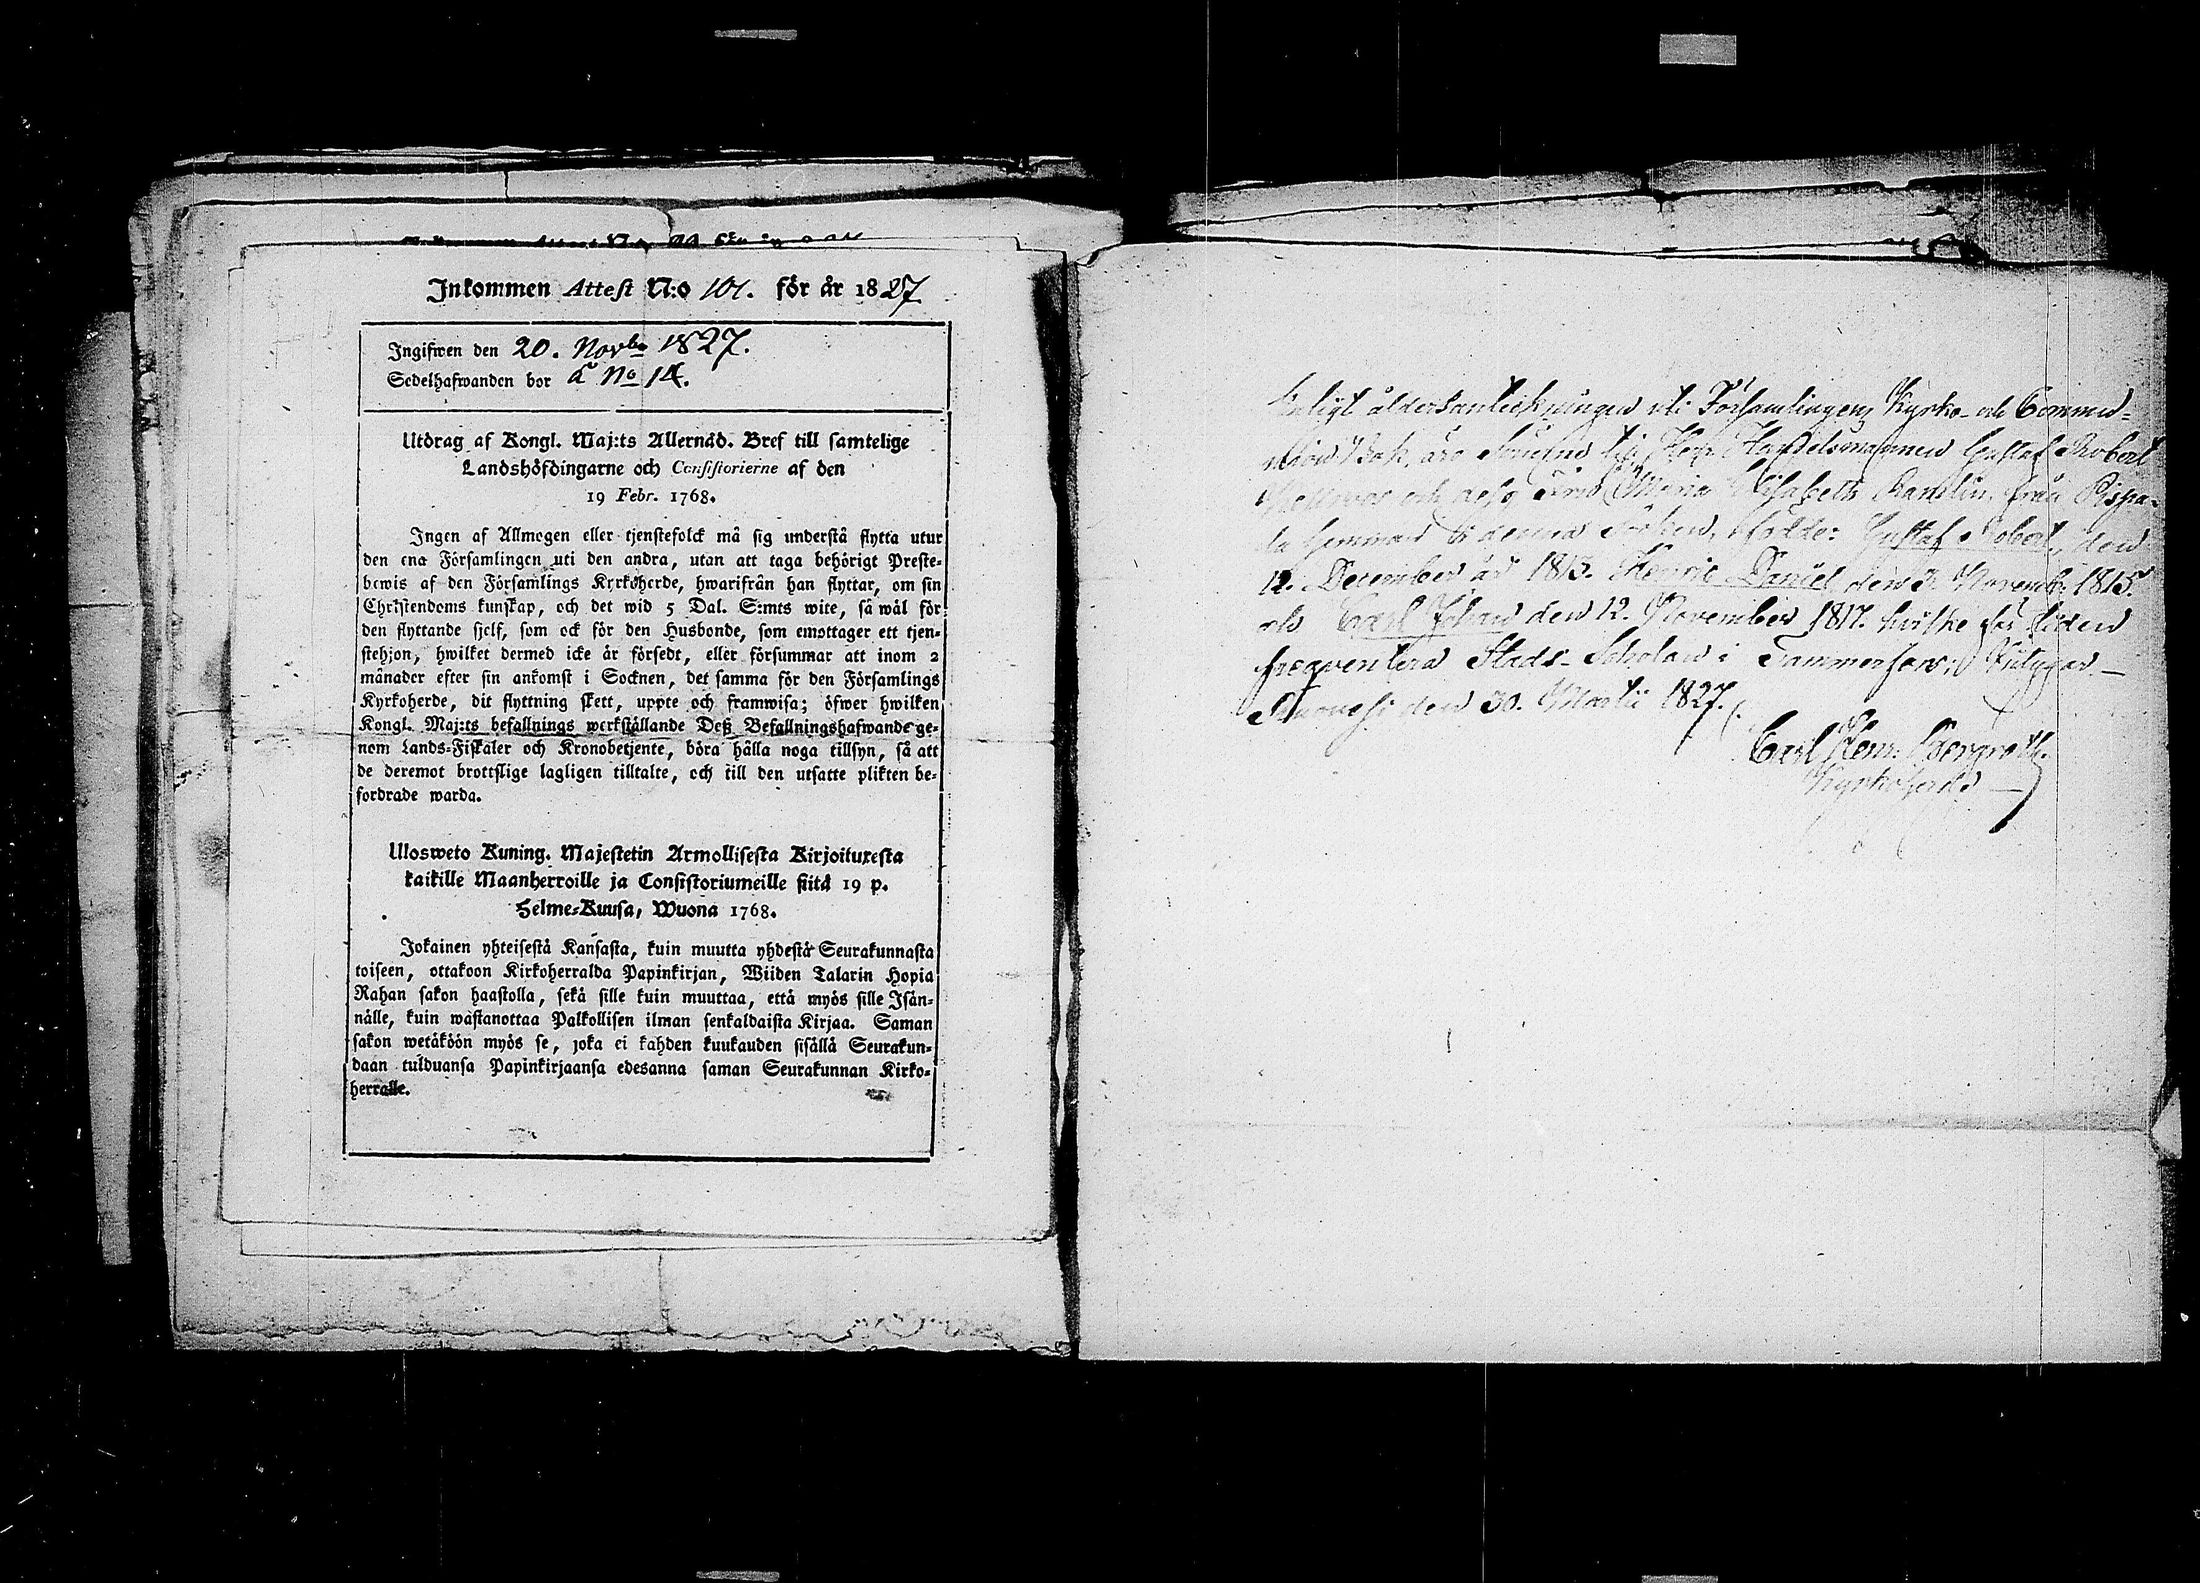 Inkommen Attest N:o 101. för år 1827
Ingifwen den 20. Novbr 1827.
Sedelhafwanden bor å No 14.
Utdrag af Kongl. Maj:ts Allernåd. Bref till samtelige
Landshöfdingarne och Consistorierne af den
19 Febr. 1768.
Ingen af Allmogen eller tjenstefolck må sig understå flytta utur
den ena Församlingen uti den andra, utan att taga behörigt Preste-
bewis af den Församlings Kyrkoherde, hwarifrån han flyttar, om sin
Christendoms kunskap, och det wid 5 Dal. S:mts wite, så wäl för
den flyttande sjelf, som ock för den Husbonde, som emottager ett tjen-
stehjon, hwilket dermed icke är försedt, eller försummar att inom 2
månader efter sin ankomst i Socknen, det samma för den Församlings
Kyrkoherde, dit flyttning skett, uppte och framwisa; öfwer hwilken
Kongl. Maj:ts befallnings werkställande Deß Befallningshafwande ge-
nom Lands-Fiskaler och Kronobetjente, böra hålla noga tillsyn, så att
de deremot brottslige lagligen tilltalte, och till den utsatte plikten be-
fordrade warda.
Ulosweto Kuning. Majestetin Armollisesta Kirjoituxesta
kaikille Maanherroille ja Consistoriumeille siitä 19 p.
Helme-Kuusa, Wuona 1768.
Jokainen yhteisestä Kansasta, kuin muutta yhdestä Seurakunnasta
toiseen, ottakoon Kirkoherralda Papinkirjan, Wiiden Talarin Hopia
Rahan sakon haastolla, sekä sille kuin muuttaa, että myös sille Isän-
nälle, kuin wastanottaa Palkollisen ilman senkaldaista Kirjaa. Saman
sakon wetäköön myös se, joka ei kahden kuukauden sisällä Seurakun-
daan tulduansa Papinkirjaansa edesanna saman Seurakunnan Kirko-
herralle.
Enligt ålders anteckningen uti Församlingens Kyrko- och Commu-
nion Bok, äro Sönerne till Herr Handelsmannen Gustaf Robert
och Maria Elisabeth från Pispa-
la hemman i denna Socken, födde: Gustaf Robert, den
12. December år 1813. Henric Daniel den 3. Novemb: 1815.
och Carl Johan den 12. November 1817. hvilke för tiden
freqventera Stads-Scholan i Tammerfors; Intygar. —
den 30. Martii 1827.
Carl Henr: Bergroth.
Kyrkoherde